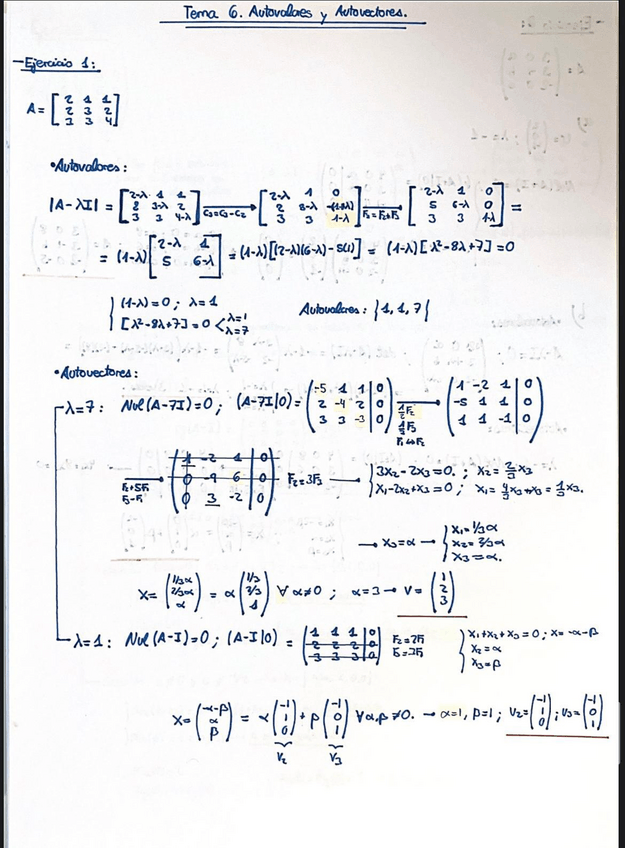 Tema 6. Autovalores y Autovectores.
-Ejercicio 1:
A = [2 1 1; 2 3 2; 3 3 4]
• Autovalores:
|A-λI| = [2-λ 1 1; 2 3-λ 2; 3 3 4-λ] C3=C3-C2 → [2-λ 1 0; 2 3-λ -(1-λ); 3 3 1-λ] F2=F2+F3 → [2-λ 1 0; 5 6-λ 0; 3 3 1-λ] =
= (1-λ) [2-λ 1; 5 6-λ] = (1-λ)[(2-λ)(6-λ)-5(1)] = (1-λ)[λ²-8λ+7] = 0
{ (1-λ)=0 ; λ=1
[λ²-8λ+7]=0 < λ=1 λ=7
Autovalores: {1, 1, 7}
• Autovectores:
λ=7: Nul(A-7I)=0; (A-7I|0) = (-5 1 1|0; 2 -4 2|0; 3 3 -3|0) ½F2 ⅓F3 F1↔F2 → (1 -2 1|0; -5 1 1|0; 1 1 -1|0)
F2+5F1 F3-F1 → (1 -2 1|0; 0 -9 6|0; 0 3 -2|0) F2=3F3 → { 3x2-2x3=0 ; x2=2/3x3
x1-2x2+x3=0 ; x1=4/3x3-x3=1/3x3.
→ x3=α → { x1=1/3α
x2=2/3α
x3=α.
X= (1/3α; 2/3α; α) = α (1/3; 2/3; 1) ∀ α≠0 ; α=3 → V= (1; 2; 3)
λ=1: Nul(A-I)=0; (A-I|0) = (1 1 1|0; 2 2 2|0; 3 3 3|0) F2=2F1 F3=3F1 { x1+x2+x3=0 ; x=-α-β
x2=α
x3=β
X= (-α-β; α; β) = α (-1; 1; 0) + β (-1; 0; 1) ∀α,β≠0. → α=1, β=1; V2= (-1; 1; 0) ; V3= (-1; 0; 1)
V2 V3